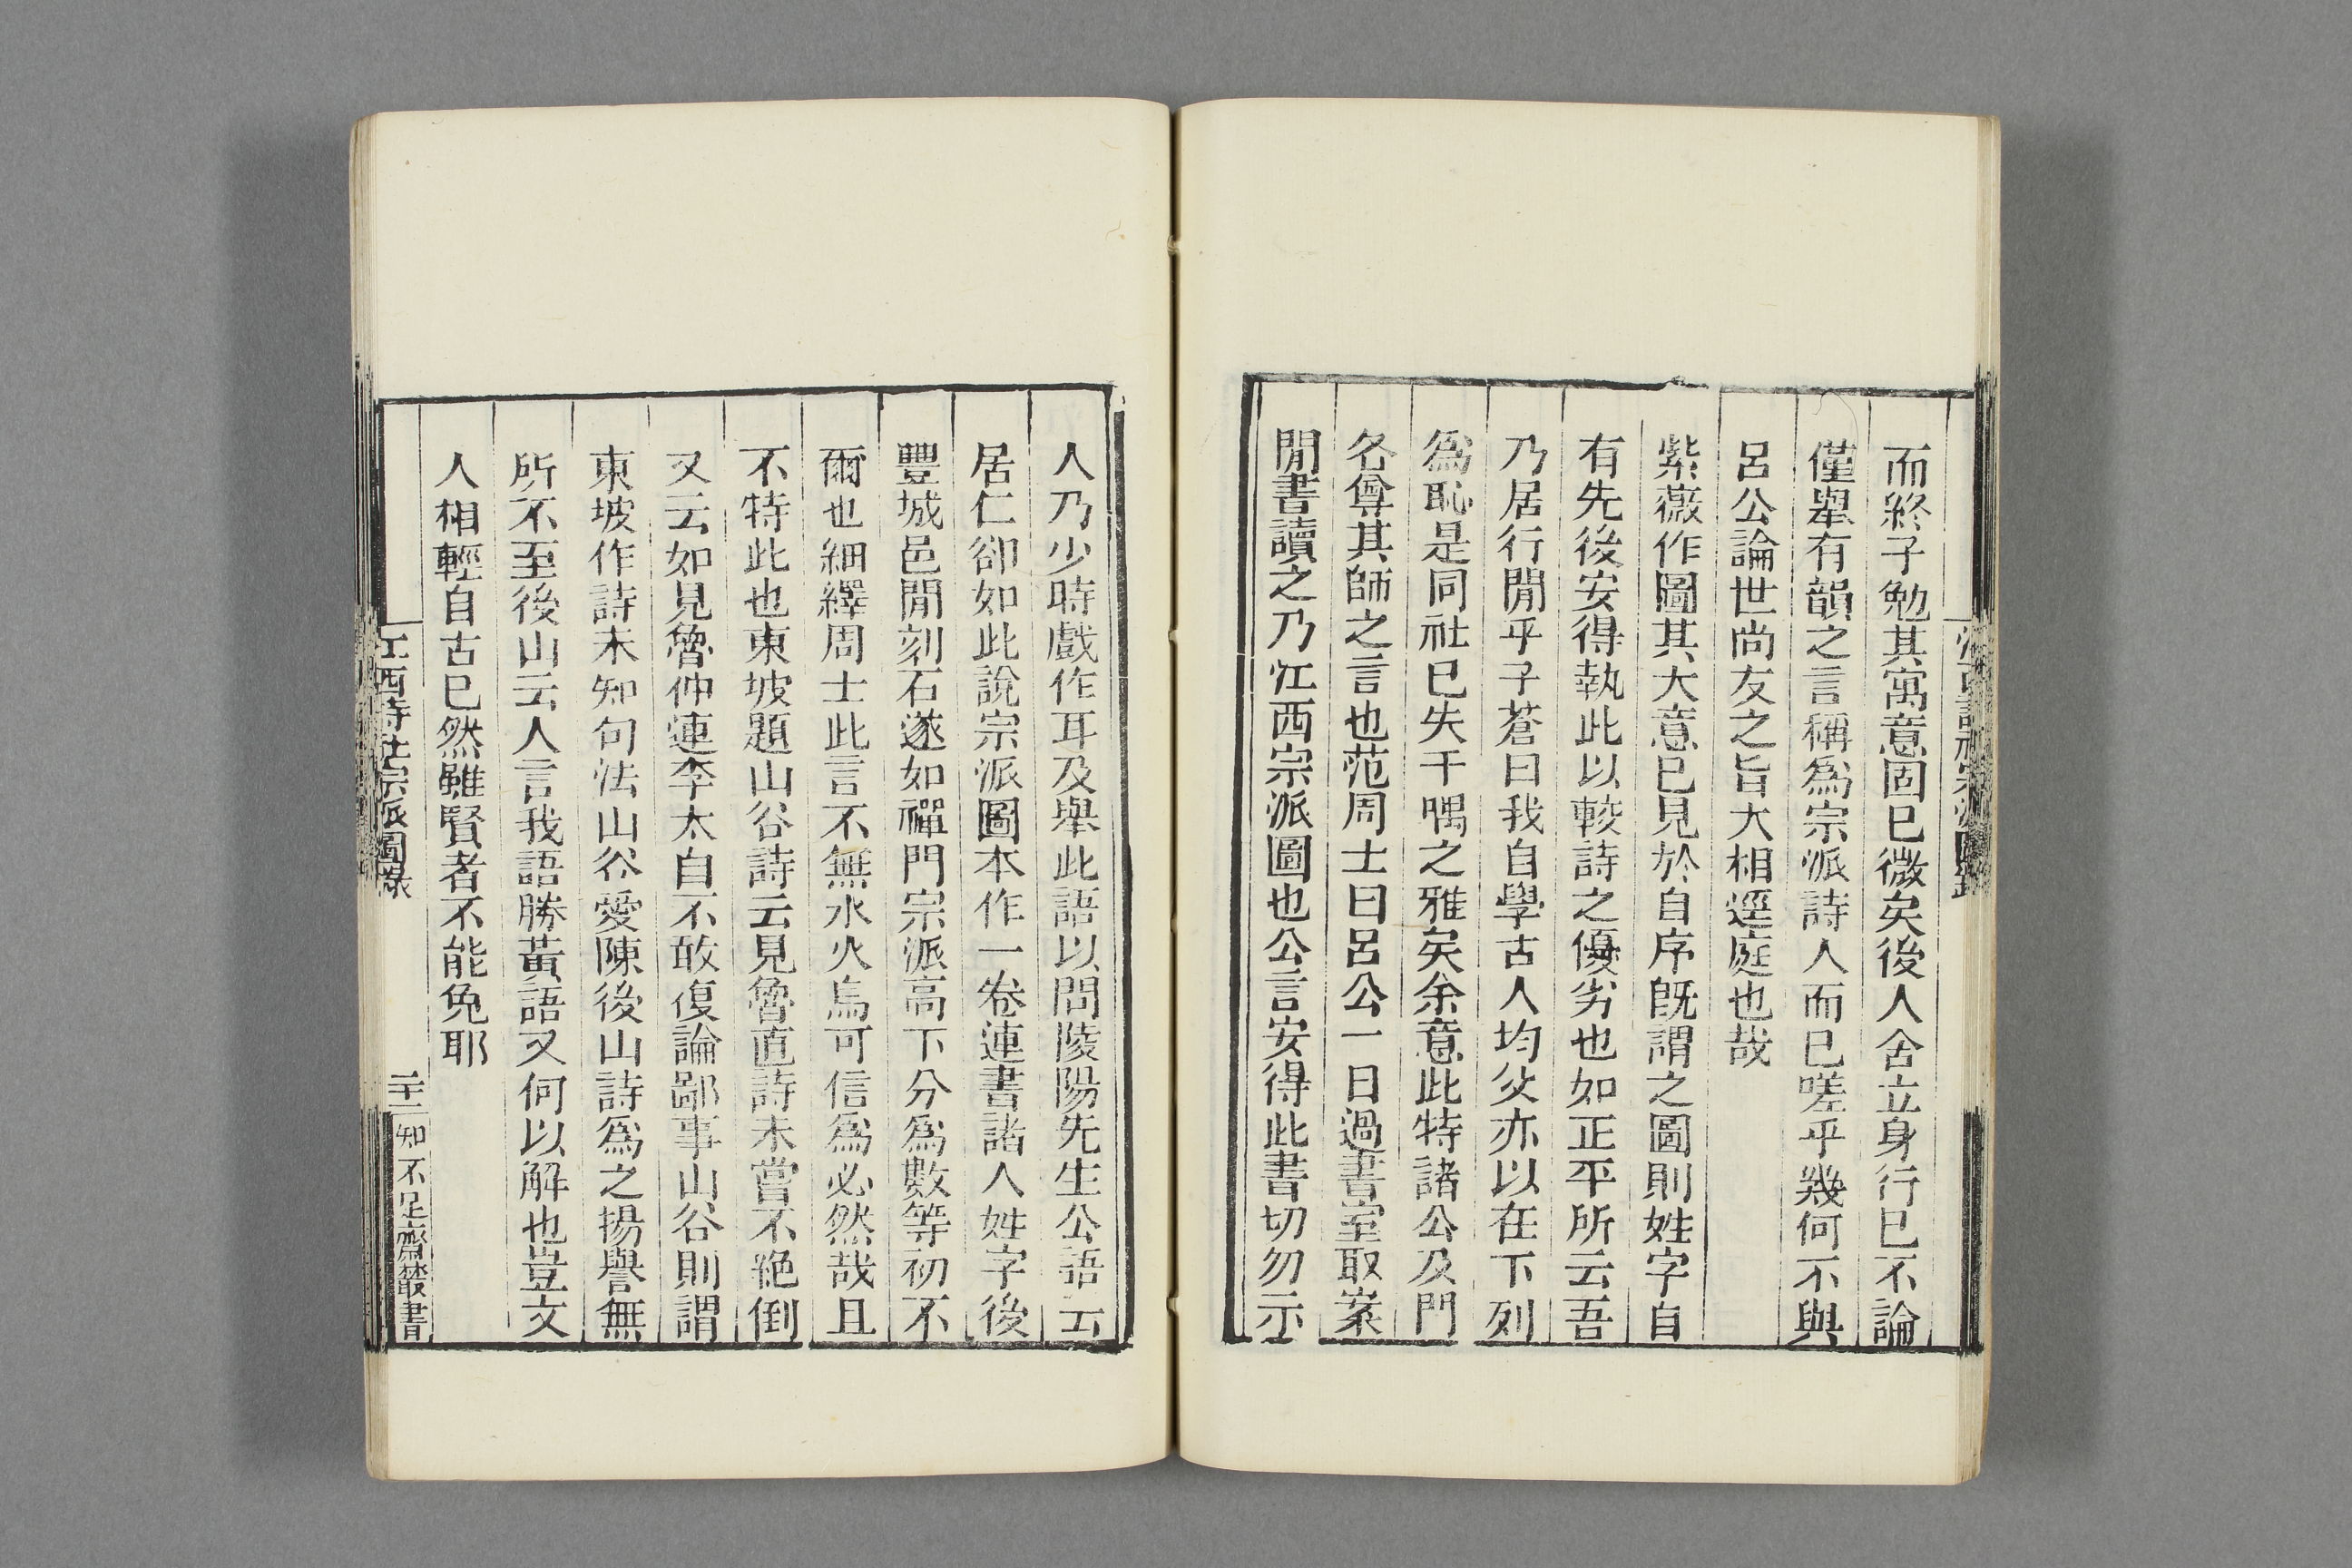 而終子勉其寓意固已微矣後人舍立身行已不論
僅舉有韻之言稱爲宗派詩人而已嗟乎幾何不與
呂公論世尚友之旨大相逕庭也哉
紫薇作圖其大意已見於自序旣謂之圖則姓字自
有先後安得執此以較詩之優劣也如正平所云吾
乃居行閒乎子蒼曰我自學古人均父亦以在下列
爲恥是同社已失于喁之雅矣余意此特諸公及門
各尊其師之言也范周士曰呂公一日過書室取案
閒書讀之乃江西宗派圖也公言安得此書切勿示
人乃少時戲作耳及舉此語以問陵陽先生公語云
居仁卻如此說宗派圖本作一卷連書諸人姓字後
豐城邑閒刻石遂如禪門宗派高下分爲數等初不
爾也細繹周士此言不無水火烏可信爲必然哉且
不特此也東坡題山谷詩云見魯直詩未嘗不絕倒
又云如見魯仲連李太自不敢復論鄙事山谷則謂
東坡作詩未知句法山谷愛陳後山詩爲之揚譽無
所不至後山云人言我語勝黃語又何以解也豈文
人相輕自古已然雖賢者不能免耶
江西詩社宗派圖錄
知不足齋叢書